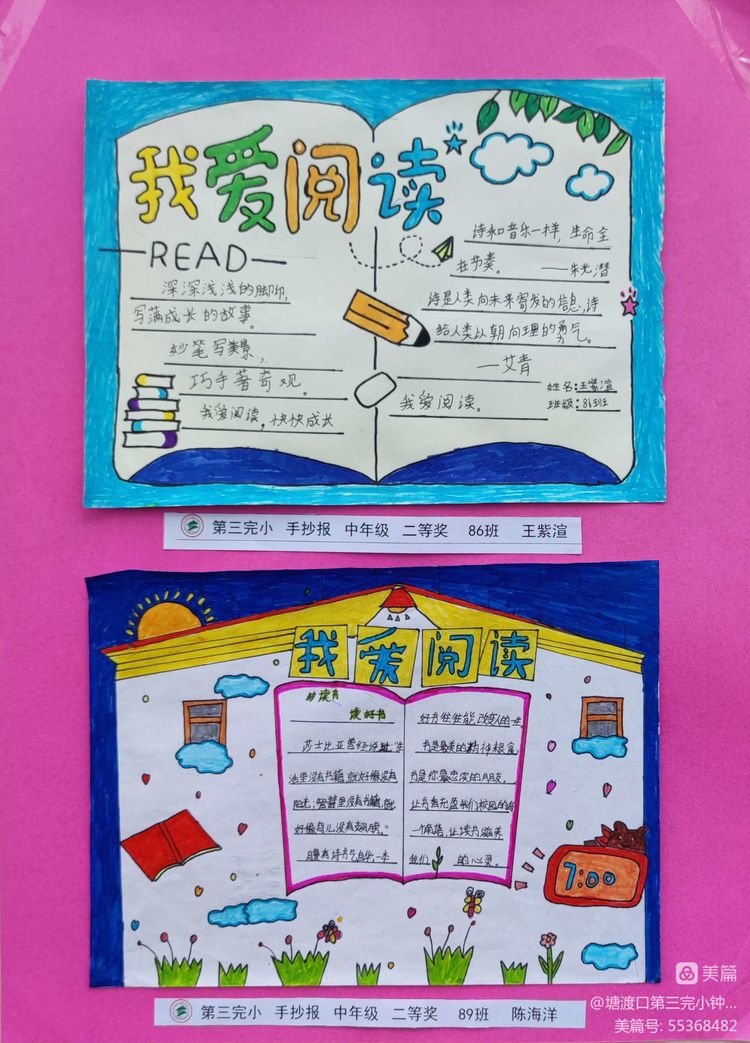 我爱阅读
READ
深深浅浅的脚印,
写满成长的故事。
妙笔写美景,
巧手著奇观。
我爱阅读,快快成长
诗和音乐一样,生命全
在节奏。 ——朱光潜
诗是人类向未来寄发的信息,诗
给人类以朝向理的勇气。
—艾青
我爱阅读。
姓名:王紫渲
班级:86班
第三完小 手抄报 中年级 二等奖 86班 王紫渲
我爱阅读
读书
读好书
莎士比亚曾经说过"生
活里没有书籍,就好像没有
阳光;智慧里没有书籍,就
好像鸟儿没有翅膀。"
腹有诗书气自华,一本
好书往往能改变人的一生
书是最美的精神粮食,
书是你最忠实的朋友,
让书香充盈我们校园的每
一个角落,让读书滋养
我们 的心灵。
7:00
第三完小 手抄报 中年级 二等奖 89班 陈海洋
美篇
@塘渡口第三完小钟...
美篇号: 55368482